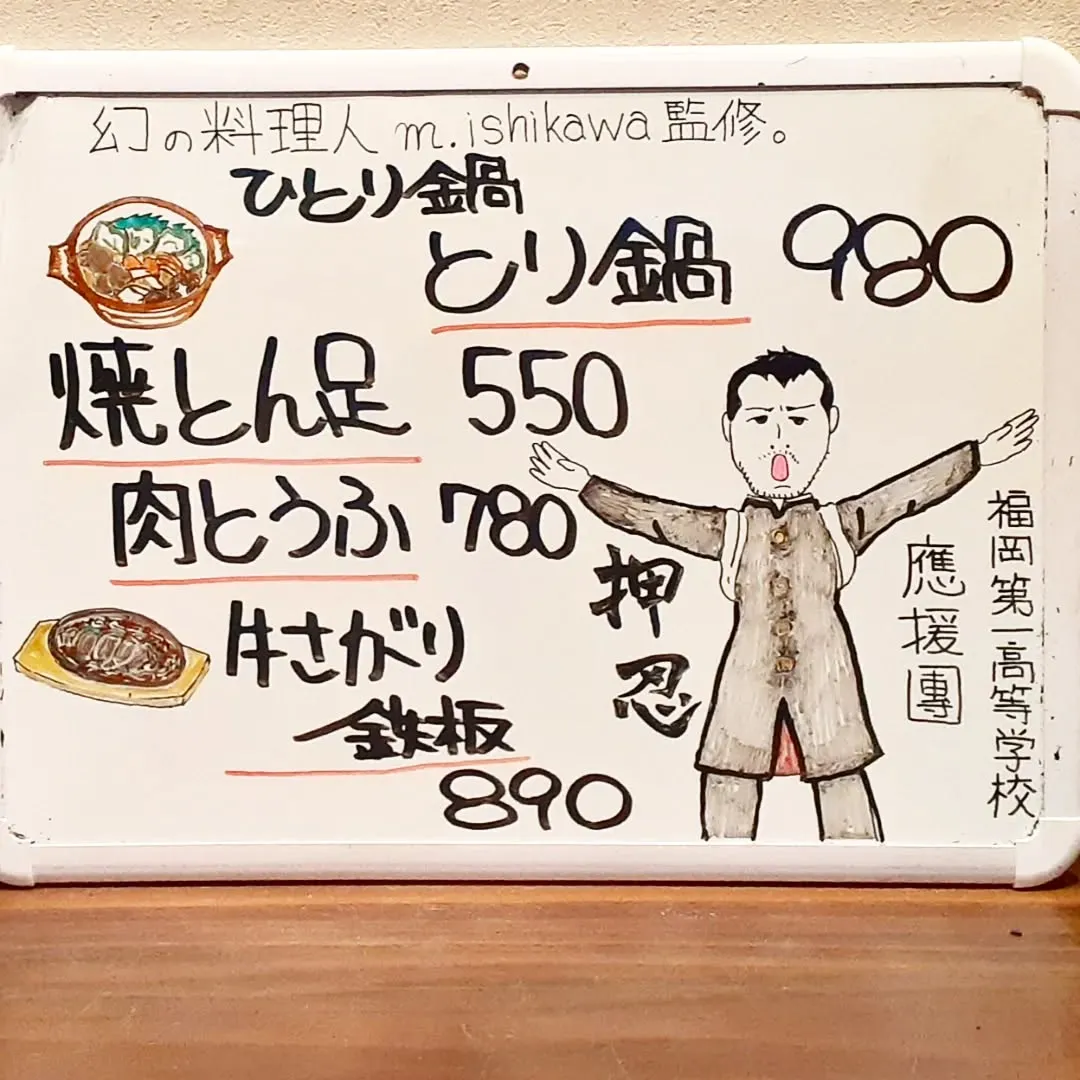 幻の料理人 m.ishikawa 監修。
ひとり鍋
とり鍋 980
焼とん足 550
肉とうふ 780
牛さがり
鉄板
890
押忍
應援團
福岡第一高等学校